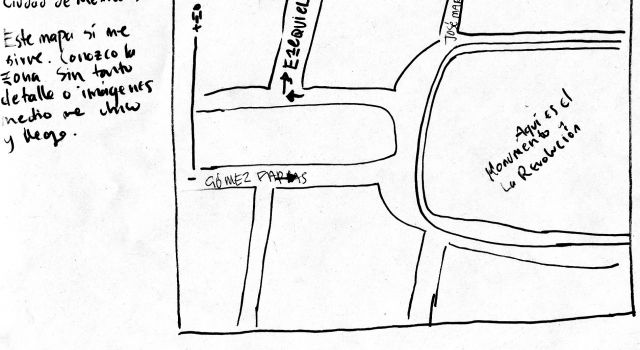 Ciudad de México
Este mapa sí me
sirve. Conozco la
zona sin tanto
detalle o imágenes
medio me ubico
y llego.
EZEQUIEL
JOSÉ MAR
GÓMEZ FARIAS
Aquí es el
Monumento a
La Revolución